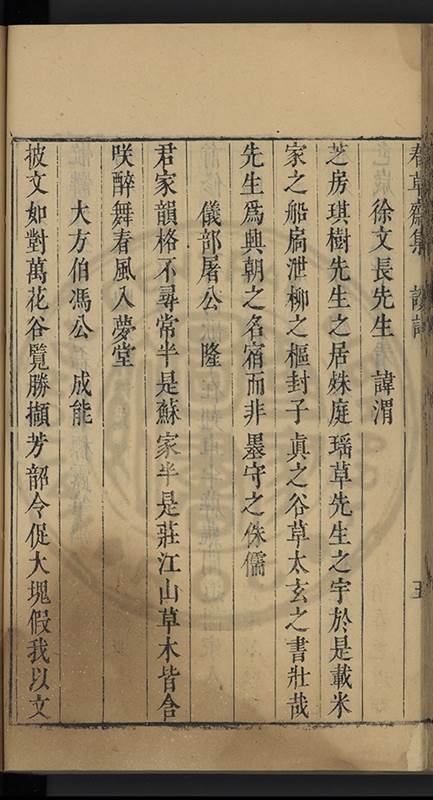 春草齋集
五
徐文長先生　諱渭
芝房琪樹先生之居姝庭瑶草先生之宇於是載米
家之船扃泄柳之樞封子真之谷草太玄之書壯哉
先生爲興朝之名宿而非墨守之侏儒
儀部屠公　隆
君家韻格不尋常半是蘇家半是莊江山草木皆含
咲醉舞春風入夢堂
大方伯馮公　成能
披文如對萬花谷覽勝擷芳韶令促大塊假我以文